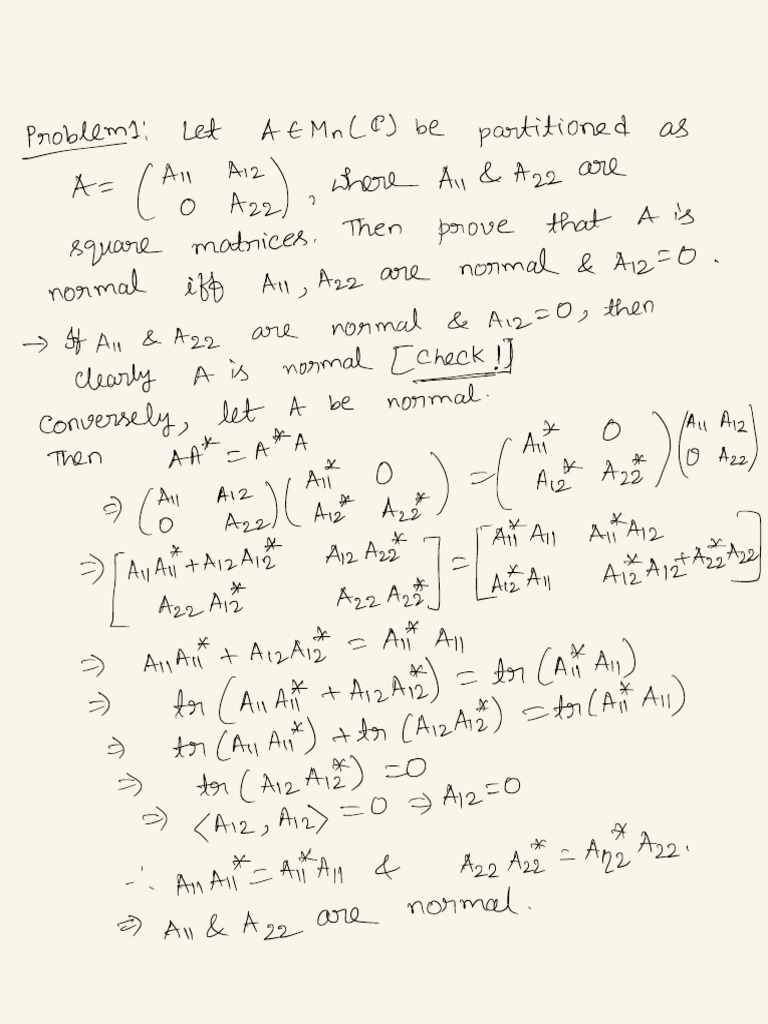 Problem1: Let A∈Mn(ℂ) be partitioned as
A = (A11 A12
0 A22), where A11 & A22 are
square matrices. Then prove that A is
normal iff A11, A22 are normal & A12=0.
→ If A11 & A22 are normal & A12=0, then
clearly A is normal [Check!]
Conversely, let A be normal.
Then AA* = A*A
⇒ (A11 A12
0 A22) (A11* 0
A12* A22*) = (A11* 0
A12* A22*) (A11 A12
0 A22)
⇒ [A11A11* + A12A12* A12A22*
A22A12* A22A22*] = [A11*A11 A11*A12
A12*A11 A12*A12+A22*A22]
⇒ A11A11* + A12A12* = A11*A11
⇒ tr(A11A11* + A12A12*) = tr(A11*A11)
⇒ tr(A11A11*) + tr(A12A12*) = tr(A11*A11)
⇒ tr(A12A12*) = 0
⇒ ⟨A12, A12⟩ = 0 ⇒ A12=0
∴ A11A11* = A11*A11 & A22A22* = A22*A22.
⇒ A11 & A22 are normal.